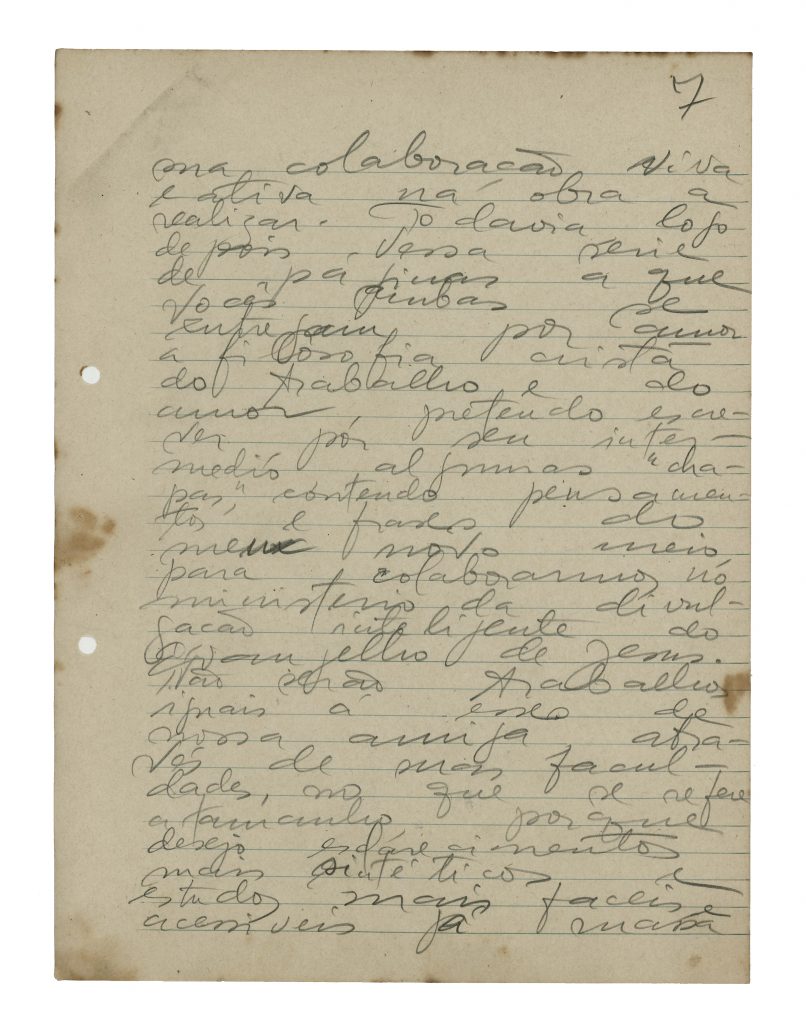 7
ma colaboracão viva
e ativa na obra a
realizar. Todavia logo
depois dessa serie
de páginas a que
vocês ambas se
entregam por amor
a filosofia cristã
do trabalho e do
amor, pretendo escre-
ver por seu inter-
medio algumas "cha-
pas" contendo pensamen-
tos e frases do
meu novo meio
para colaborarmos no
ministerio da divul-
gacão inteligente do
Evangelho de Jesus.
Não serão trabalhos
iguais á esse de
nossa amiga atra-
vés de mas facul-
dades, no que se refere
a tamanho porque
desejo esclarecimentos
mais sintéticos e
estudos mais faceis e
acessiveis á massa